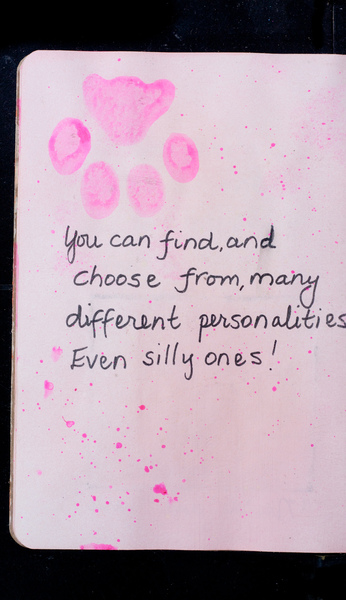 You can find, and
choose from, many
different personalities
Even silly ones!